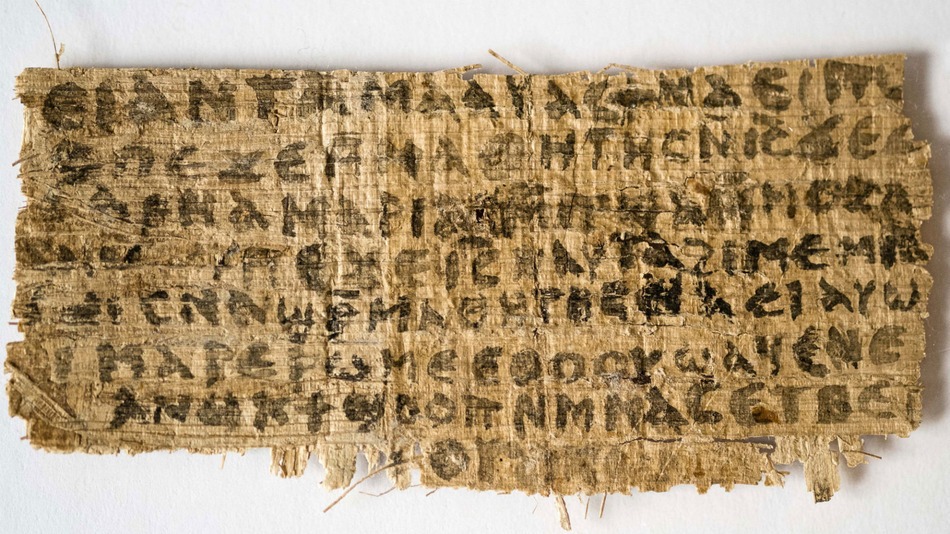 ⲉⲓⲁⲛ ⲧⲁⲙⲁⲁⲩ ⲁⲥϯ ⲛⲁⲉⲓ ⲡⲱ
ⲡⲉϫⲉ ⲙⲙⲁⲑⲏⲧⲏⲥ ⲛⲓⲥ ϫⲉ ⲥ
ⲁⲣⲛⲁ ⲙⲁⲣⲓⲁⲙ ⲙⲡϣⲁ ⲙⲙⲟⲥ ⲁ
ⲡⲉϫⲉ ⲓⲥ ⲛⲁⲩ ⲧⲁϩⲓⲙⲉ ⲙⲛ
ⲥⲛⲁϣⲣ ⲙⲁⲑⲏⲧⲏⲥ ⲛⲁⲉⲓ ⲁⲩⲱ
ⲓ ⲙⲁⲣⲉⲣⲱⲙⲉ ⲉⲑⲟⲟⲩ ϣⲁϥⲉⲛⲉ
ⲁⲛⲟⲕ ϯϣⲟⲟⲡ ⲛⲙⲙⲁⲥ ⲉⲧⲃⲉ